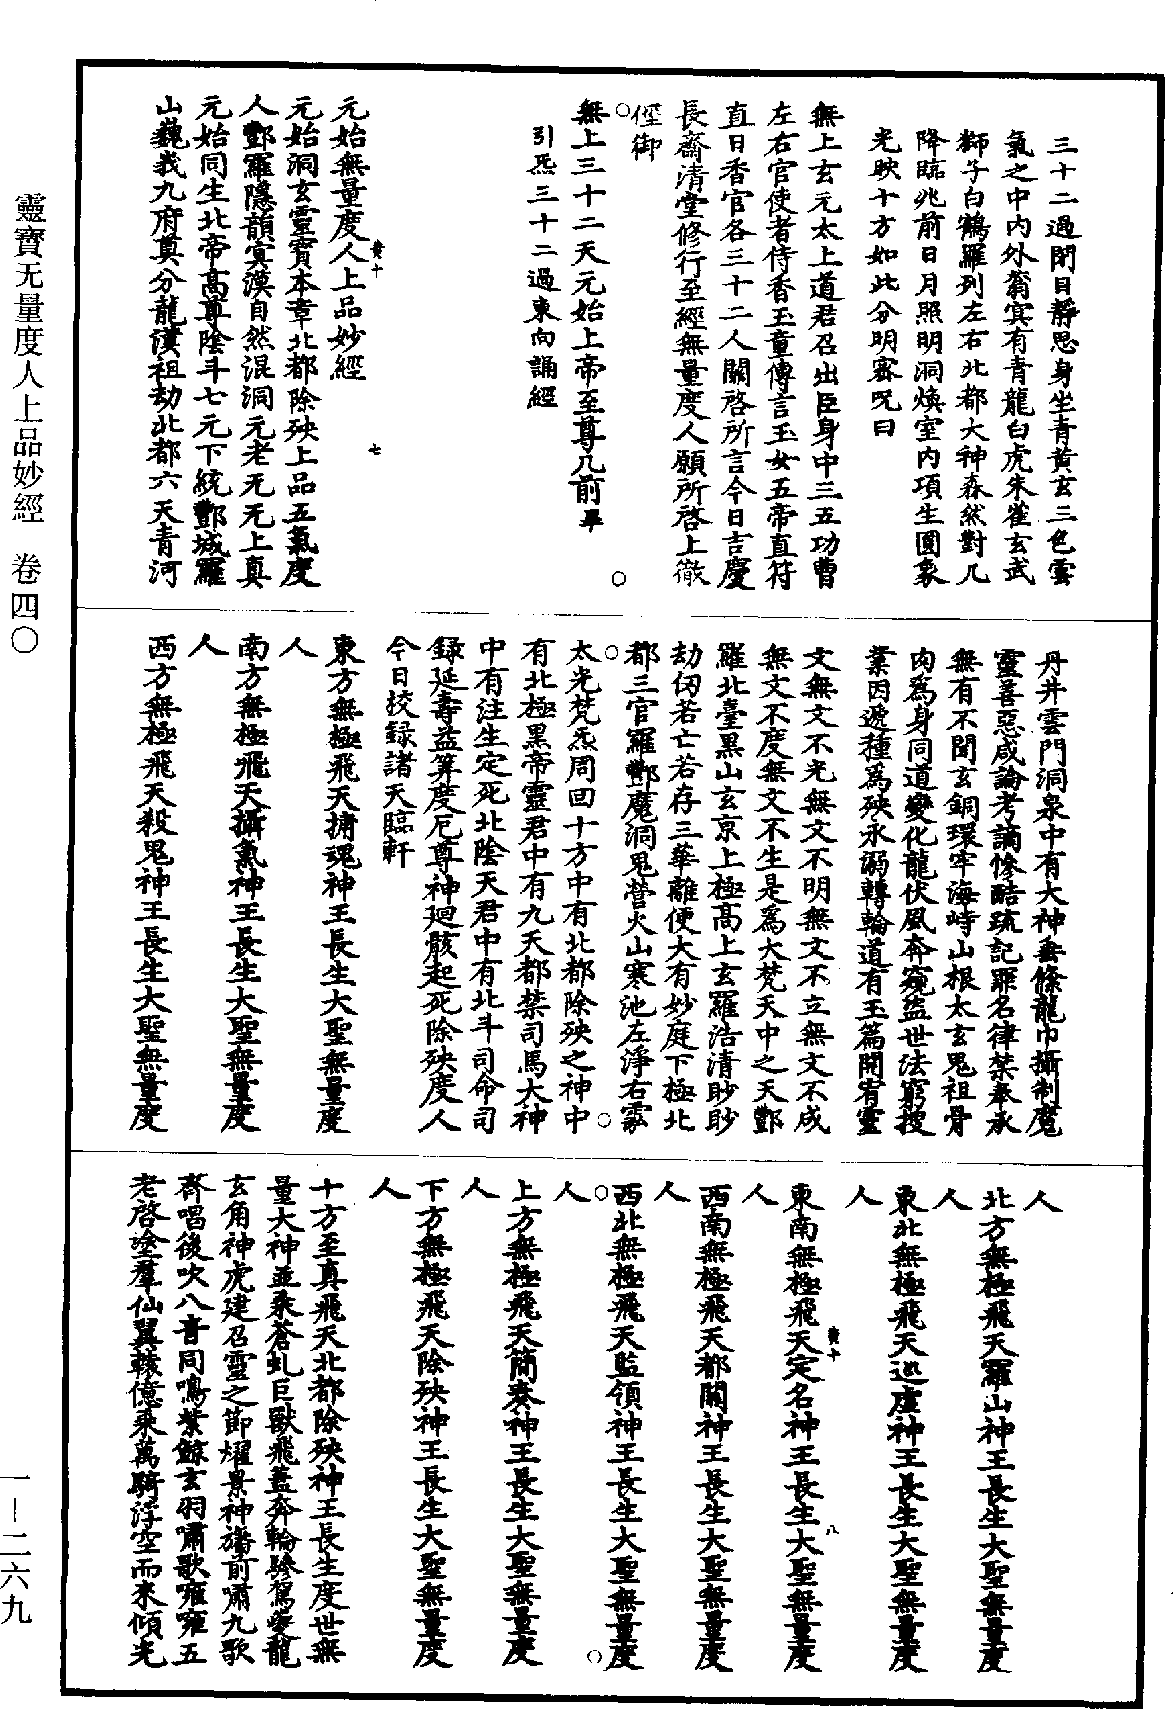 三十二過閉目靜思身坐青黃玄三色雲
氣之中内外蓊冥有青龍白虎朱雀玄武
獅子白鶴羅列左右北都大神森然對几
降臨兆前日月照明洞煥室内項生圓象
光映十方如此分明密呪曰
無上玄元太上道君召出臣身中三五功曹
左右官使者侍香玉童傳言玉女五帝直符
直日香官各三十二人關啓所言今日吉慶
長齋清堂修行至經無量度人願所啓上徹
徑御
無上三十二天元始上帝至尊几前畢
引炁三十二過東向誦經
黃十 七
元始無量度人上品妙經
元始洞玄靈寶本章北都除殃上品五氣度
人酆羅隱韻冥漠自然混洞元老无无上真
元始同生北帝高尊陰斗七元下統酆城羅
山巍義九府奠分龍漢祖劫北都六天青河
丹井雲門洞泉中有大神垂絛龍巾攝制魔
靈善惡咸論考謫慘酷疏記罪名律禁奉承
無有不聞玄銅環牢海峙山根太玄鬼祖骨
肉爲身同道變化龍伏風奔窺盜世法窮搜
業因遞種爲殃永溺轉輪道有玉篇開宥靈
文無文不光無文不明無文不立無文不成
無文不度無文不生是爲大梵天中之天酆
羅北臺黑山玄京上極高上玄羅浩清眇眇
劫仞若亡若存三華離便大有妙庭下極北
都三官羅酆魔洞鬼營火山寒池左淨右霐
太光梵炁周回十方中有北都除殃之神中
有北極黑帝靈君中有九天都禁司馬大神
中有注生定死北陰天君中有北斗司命司
録延壽益筭度厄尊神廻骸起死除殃度人
今日校録諸天臨軒
東方無極飛天擁魂神王長生大聖無量度
人
南方無極飛天攝氣神王長生大聖無量度
人
西方無極飛天殺鬼神王長生大聖無量度
人
北方無極飛天羅山神王長生大聖無量度
人
東北無極飛天巡虛神王長生大聖無量度
人
黃十 八
東南無極飛天定名神王長生大聖無量度
人
西南無極飛天都關神王長生大聖無量度
人
西北無極飛天監領神王長生大聖無量度
人
上方無極飛天簡奏神王長生大聖無量度
人
下方無極飛天除殃神王長生大聖無量度
人
十方至真飛天北都除殃神王長生度世無
量大神並乘蒼虬巨獸飛蓋奔輪驂駕夔龍
玄角神虎建召靈之節燿景神旛前嘯九歌
齊唱後吹八音同鳴紫鯨玄羽嘯歌雍雍五
老啓塗羣仙翼轅億乘萬騎浮空而來傾光
靈寶无量度人上品妙經 卷四〇
一—二六九